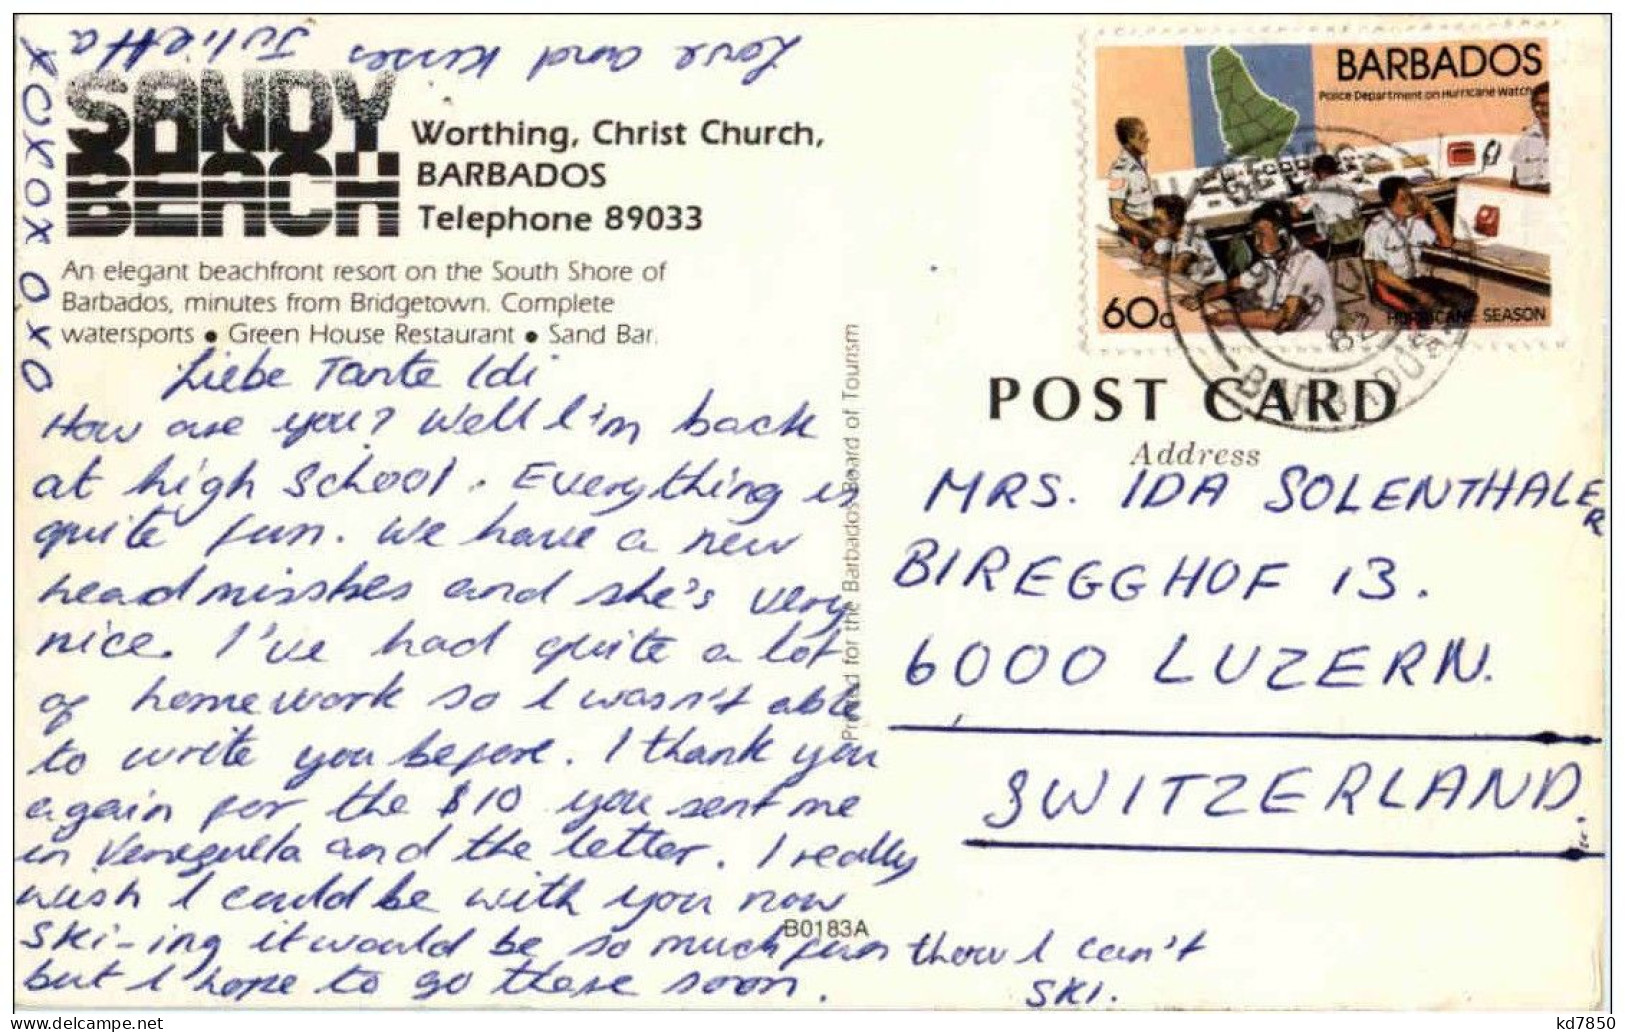 Love and kisses Julietta
XOXOXOXOXO
SANDY
BEACH
Worthing, Christ Church,
BARBADOS
Telephone 89033
An elegant beachfront resort on the South Shore of
Barbados, minutes from Bridgetown. Complete
watersports • Green House Restaurant • Sand Bar.
Liebe Tante Idi
How are you? Well I'm back
at high school. Everything is
quite fun. We have a new
headmisstses and she's very
nice. I've had quite a lot
of homework so I wasn't able
to write you before. I thank you
again for the $10 you sent me
in Venezuela and the letter. I really
wish I could be with you now
SKi-ing it would be so much fun thow I can't
SKI.
but I hope to go there soon.
Printed for the Barbados Board of Tourism
B0183A
BARBADOS
Police Department on Hurricane Watch
60c
HURRICANE SEASON
82
BARBADOS
POST CARD
Address
MRS. IDA SOLENTHALER
BIREGGHOF 13.
6000 LUZERN.
SWITZERLAND.
kd7850